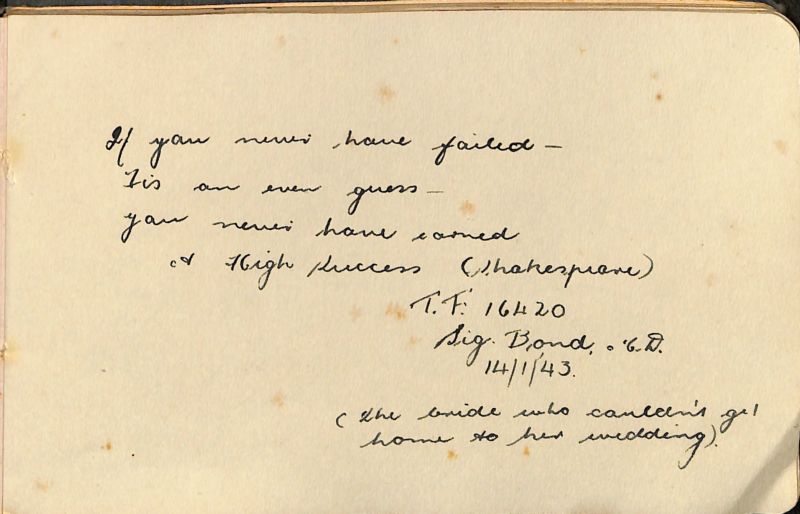 If you never have failed –
'Tis an even guess –
you never have earned
A High Success (Shakespeare)
T.F. 16420
Sig. Bond, C.D.
14/1/43.
(The bride who couldn't get
home to her wedding).